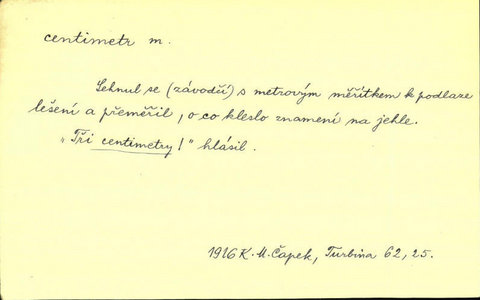 centimetr m.
Sehnul se (závodčí) s metrovým měřítkem k podlaze
lešení a přeměřil, o co kleslo znamení na jehle.
"Tři centimetry!" hlásil.
1916 K. M. Čapek, Turbina 62, 25.